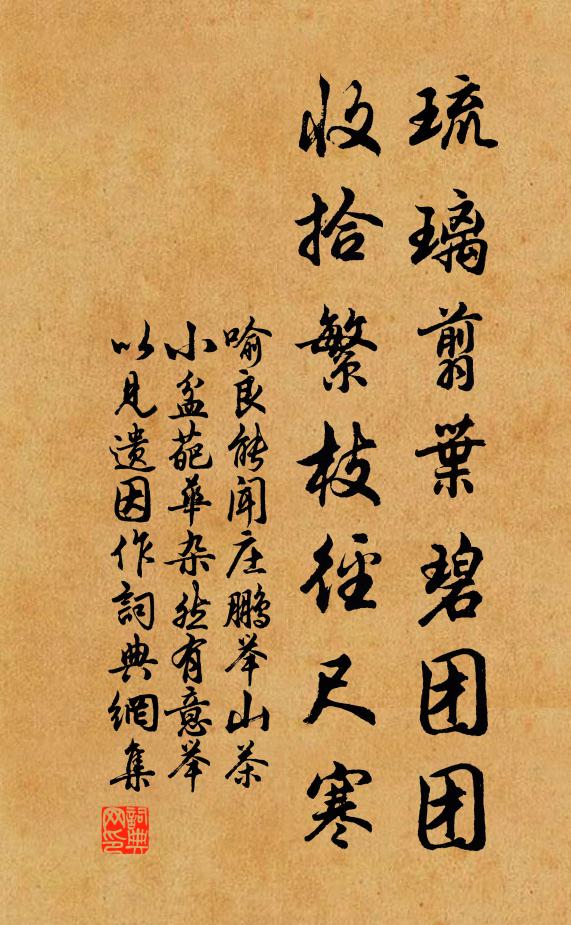 琉璃翦葉碧团团
收拾繁枝徑尺寒
喻良能闻庄鹏举山茶
小盆葩華杂然有意举
以見遺因作詞典網集
詞典網印